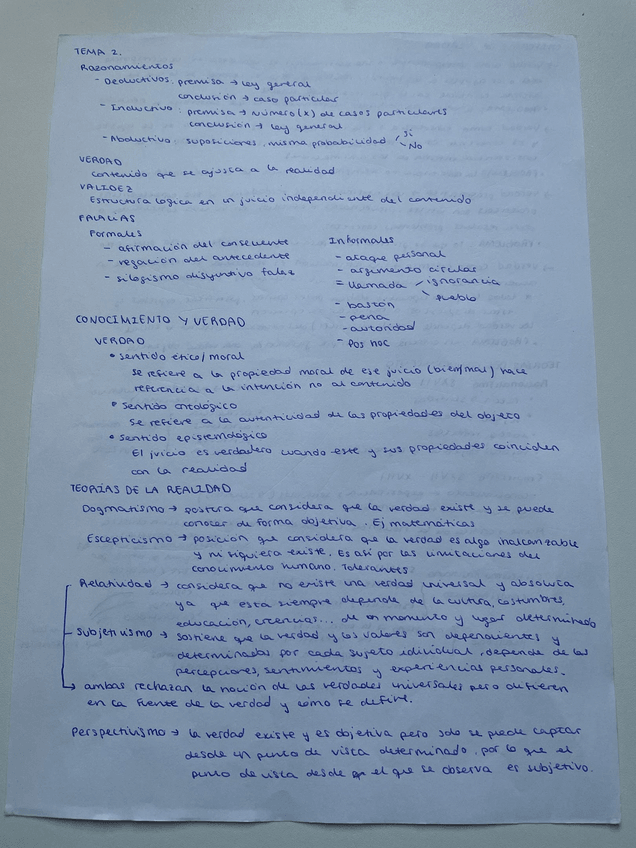 TEMA 2.
Razonamientos
- Deductivos: premisa → ley general
conclusión → caso particular
- Inductivo: premisa → número (x) de casos particulares
conclusión → ley general
- Abductivo: suposiciones, misma probabilidad Si
No
VERDAD
Contenido que se ajusta a la realidad
VALIDEZ
Estructura lógica en un juicio independiente del contenido
FALACIAS
Formales
- afirmación del consecuente
- negación del antecedente
- silogismo disyuntivo falaz
Informales
- ataque personal
- argumento circular
- llamada ignorancia
pueblo
- bastón
- pena
- autoridad
- Pos hoc
CONOCIMIENTO Y VERDAD
VERDAD
• Sentido ético/moral
Se refiere a la propiedad moral de ese juicio (bien/mal) hace
referencia a la intención no al contenido
• Sentido ontológico
Se refiere a la autenticidad de las propiedades del objeto
• Sentido epistemológico
El juicio es verdadero cuando este y sus propiedades coinciden
con la realidad
TEORÍAS DE LA REALIDAD
Dogmatismo → postura que considera que la verdad existe y se puede
conocer de forma objetiva. Ej matemáticas
Escepticismo → posición que considera que la verdad es algo inalcanzable
y ni siquiera existe. Es así por las limitaciones del
conocimiento humano. Tolerantes
Relatividad → considera que no existe una verdad universal y absoluta
ya que esta siempre depende de la cultura, costumbres,
educación, creencias... de un momento y lugar determinado
Subjetivismo → sostiene que la verdad y los valores son dependientes y
determinadas por cada sujeto idividual, depende de las
percepciones, sentimientos y experiencias personales.
→ ambas rechazan la noción de las verdades universales pero difieren
en la fuente de la verdad y como se define.
Perspectivismo → la verdad existe y es objetiva pero solo se puede captar
desde un punto de vista determinado, por lo que el
punto de vista desde el que se observa es subjetivo.